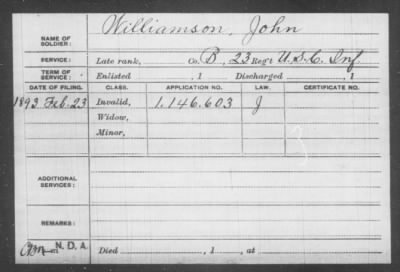 NAME OF SOLDIER: Williamson, John
SERVICE: Late rank, Co. B, 23 Reg't U.S.C. Inf.
TERM OF SERVICE: Enlisted , 1 Discharged , 1
DATE OF FILING. CLASS. APPLICATION NO. LAW. CERTIFICATE NO.
1893 Feb. 23 Invalid, 1.146.603 J
Widow,
Minor,
ADDITIONAL SERVICES:
REMARKS:
N.D.A. Died , 1 , at